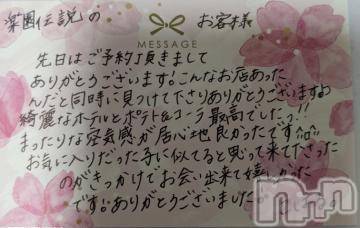 楽園伝説の お客様
MESSAGE
先日はご予約頂きまして
ありがとうございます!こんなお店あった
んだと同時に見つけて下さりありがとうございます
綺麗なホテルとポテト&コーラ最高でしたっ!!
まったりな空気感が居心地良かったです
お気に入りだった子に似てると思って来て下さった
のがきっかけでお会い出来て嬉しかった
です!ありがとうございました